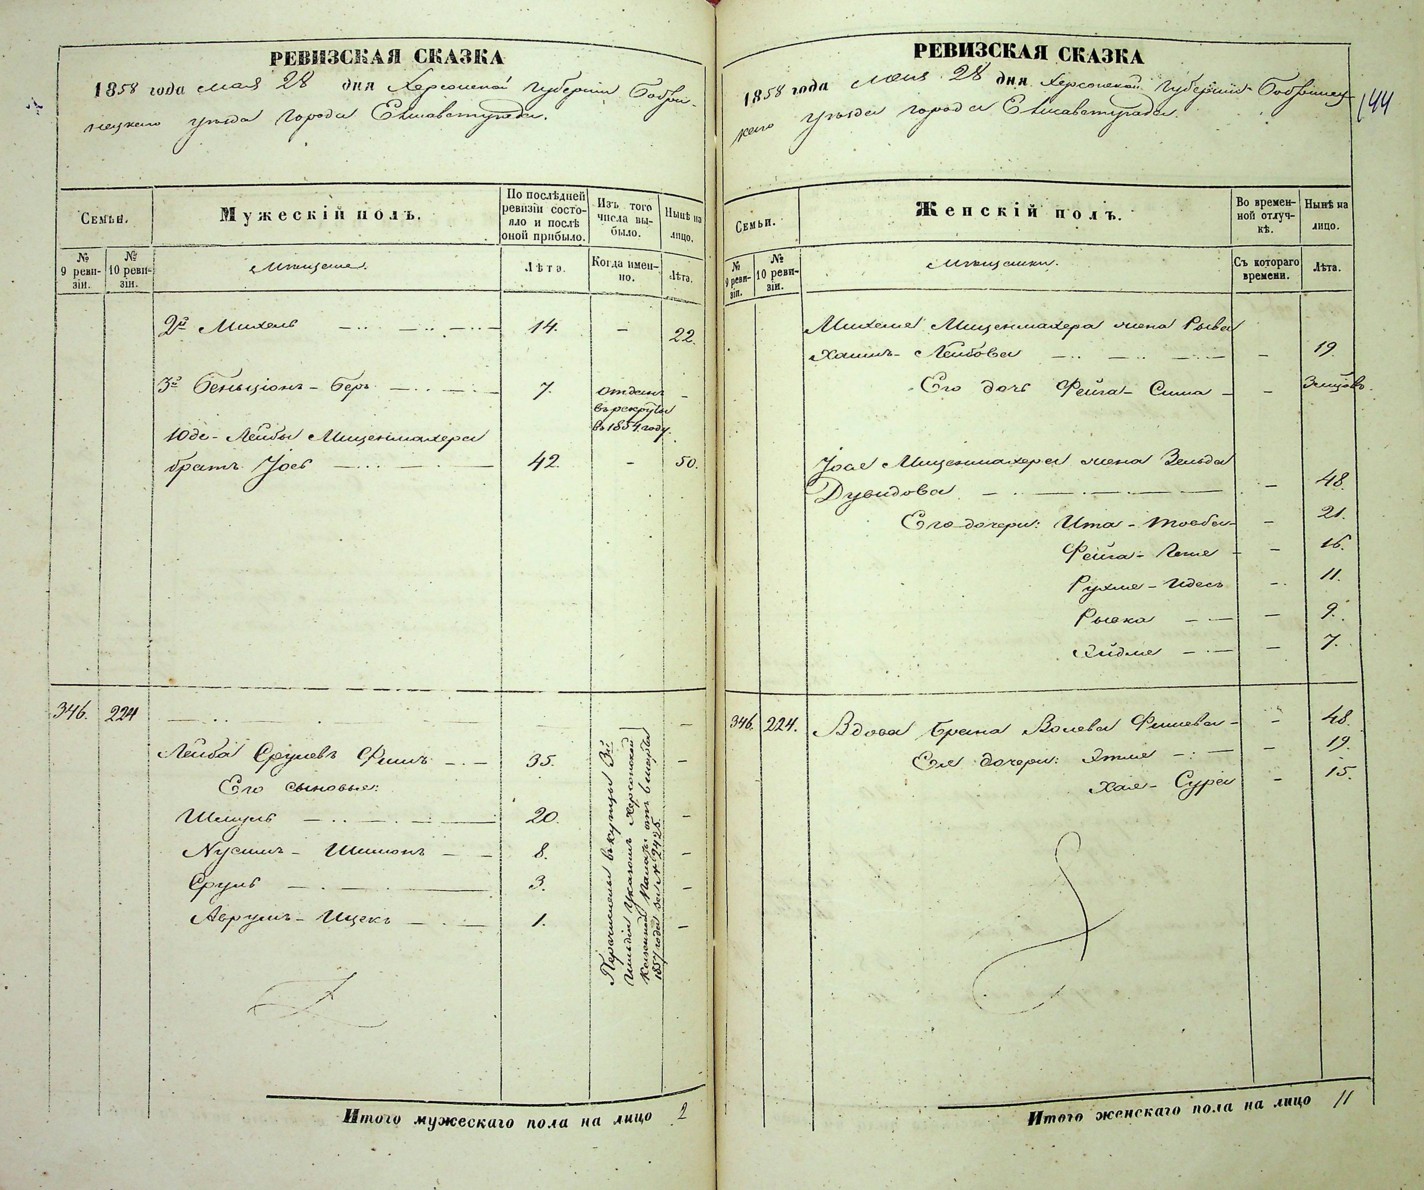 РЕВИЗСКАЯ СКАЗКА
1858 года мая 28 дня Херсонской Губерніи Бобри-
нецкаго уѣзда города Елисаветграда.
Семьи.
Мужескій полъ.
По послѣдней ревизіи состояло и послѣ оной прибыло.
Изъ того числа выбыло.
Нынѣ на лицо.
№ 9 ревизіи.
№ 10 ревизіи.
Мѣщане.
Лѣта.
Когда именно.
Лѣта.
2й Михель 14. - 22.
3й Беньціонъ-Беръ 7. отданъ въ рекруты въ 1854 году. -
Юде-Лейбы Мищенмахера
братъ Іось 42. - 50.
346. 224
Лейба Срулевъ Фишъ 35. -
Его сыновья:
Шмуль 20. -
Нусимъ-Шимонъ 8. -
Сруль 3. -
Аврумъ-Ицекъ 1. -
Перечислены въ купцы 3й
Гильдіи Указомъ Херсонской
Казенной Палаты отъ
1857 года за № 2425.
Итого мужескаго пола на лицо 2
РЕВИЗСКАЯ СКАЗКА
1858 года мая 28 дня Херсонской Губерніи Бобринец-
каго уѣзда города Елисаветграда.
144
Семьи.
Женскій полъ.
Во временной отлучкѣ.
Нынѣ на лицо.
№ 9 ревизіи.
№ 10 ревизіи.
Мѣщанки.
Съ котораго времени.
Лѣта.
Михеля Мищенмахера жена Рыва
Хаимъ-Лейбова - 19.
Его дочь Фейга-Сима -
Іося Мищенмахера жена Зельда
Дувидова - 48.
Его дочери: Ита-Тоєба - 21.
Фейга- - 16.
Рухля-Идесъ - 11.
Рывка - 9.
Эйдля - 7.
346. 224. Вдова Брана Волева Фишева - 48.
Ея дочери: Этля - 19.
Хая-Сура - 15.
Итого женскаго пола на лицо 11